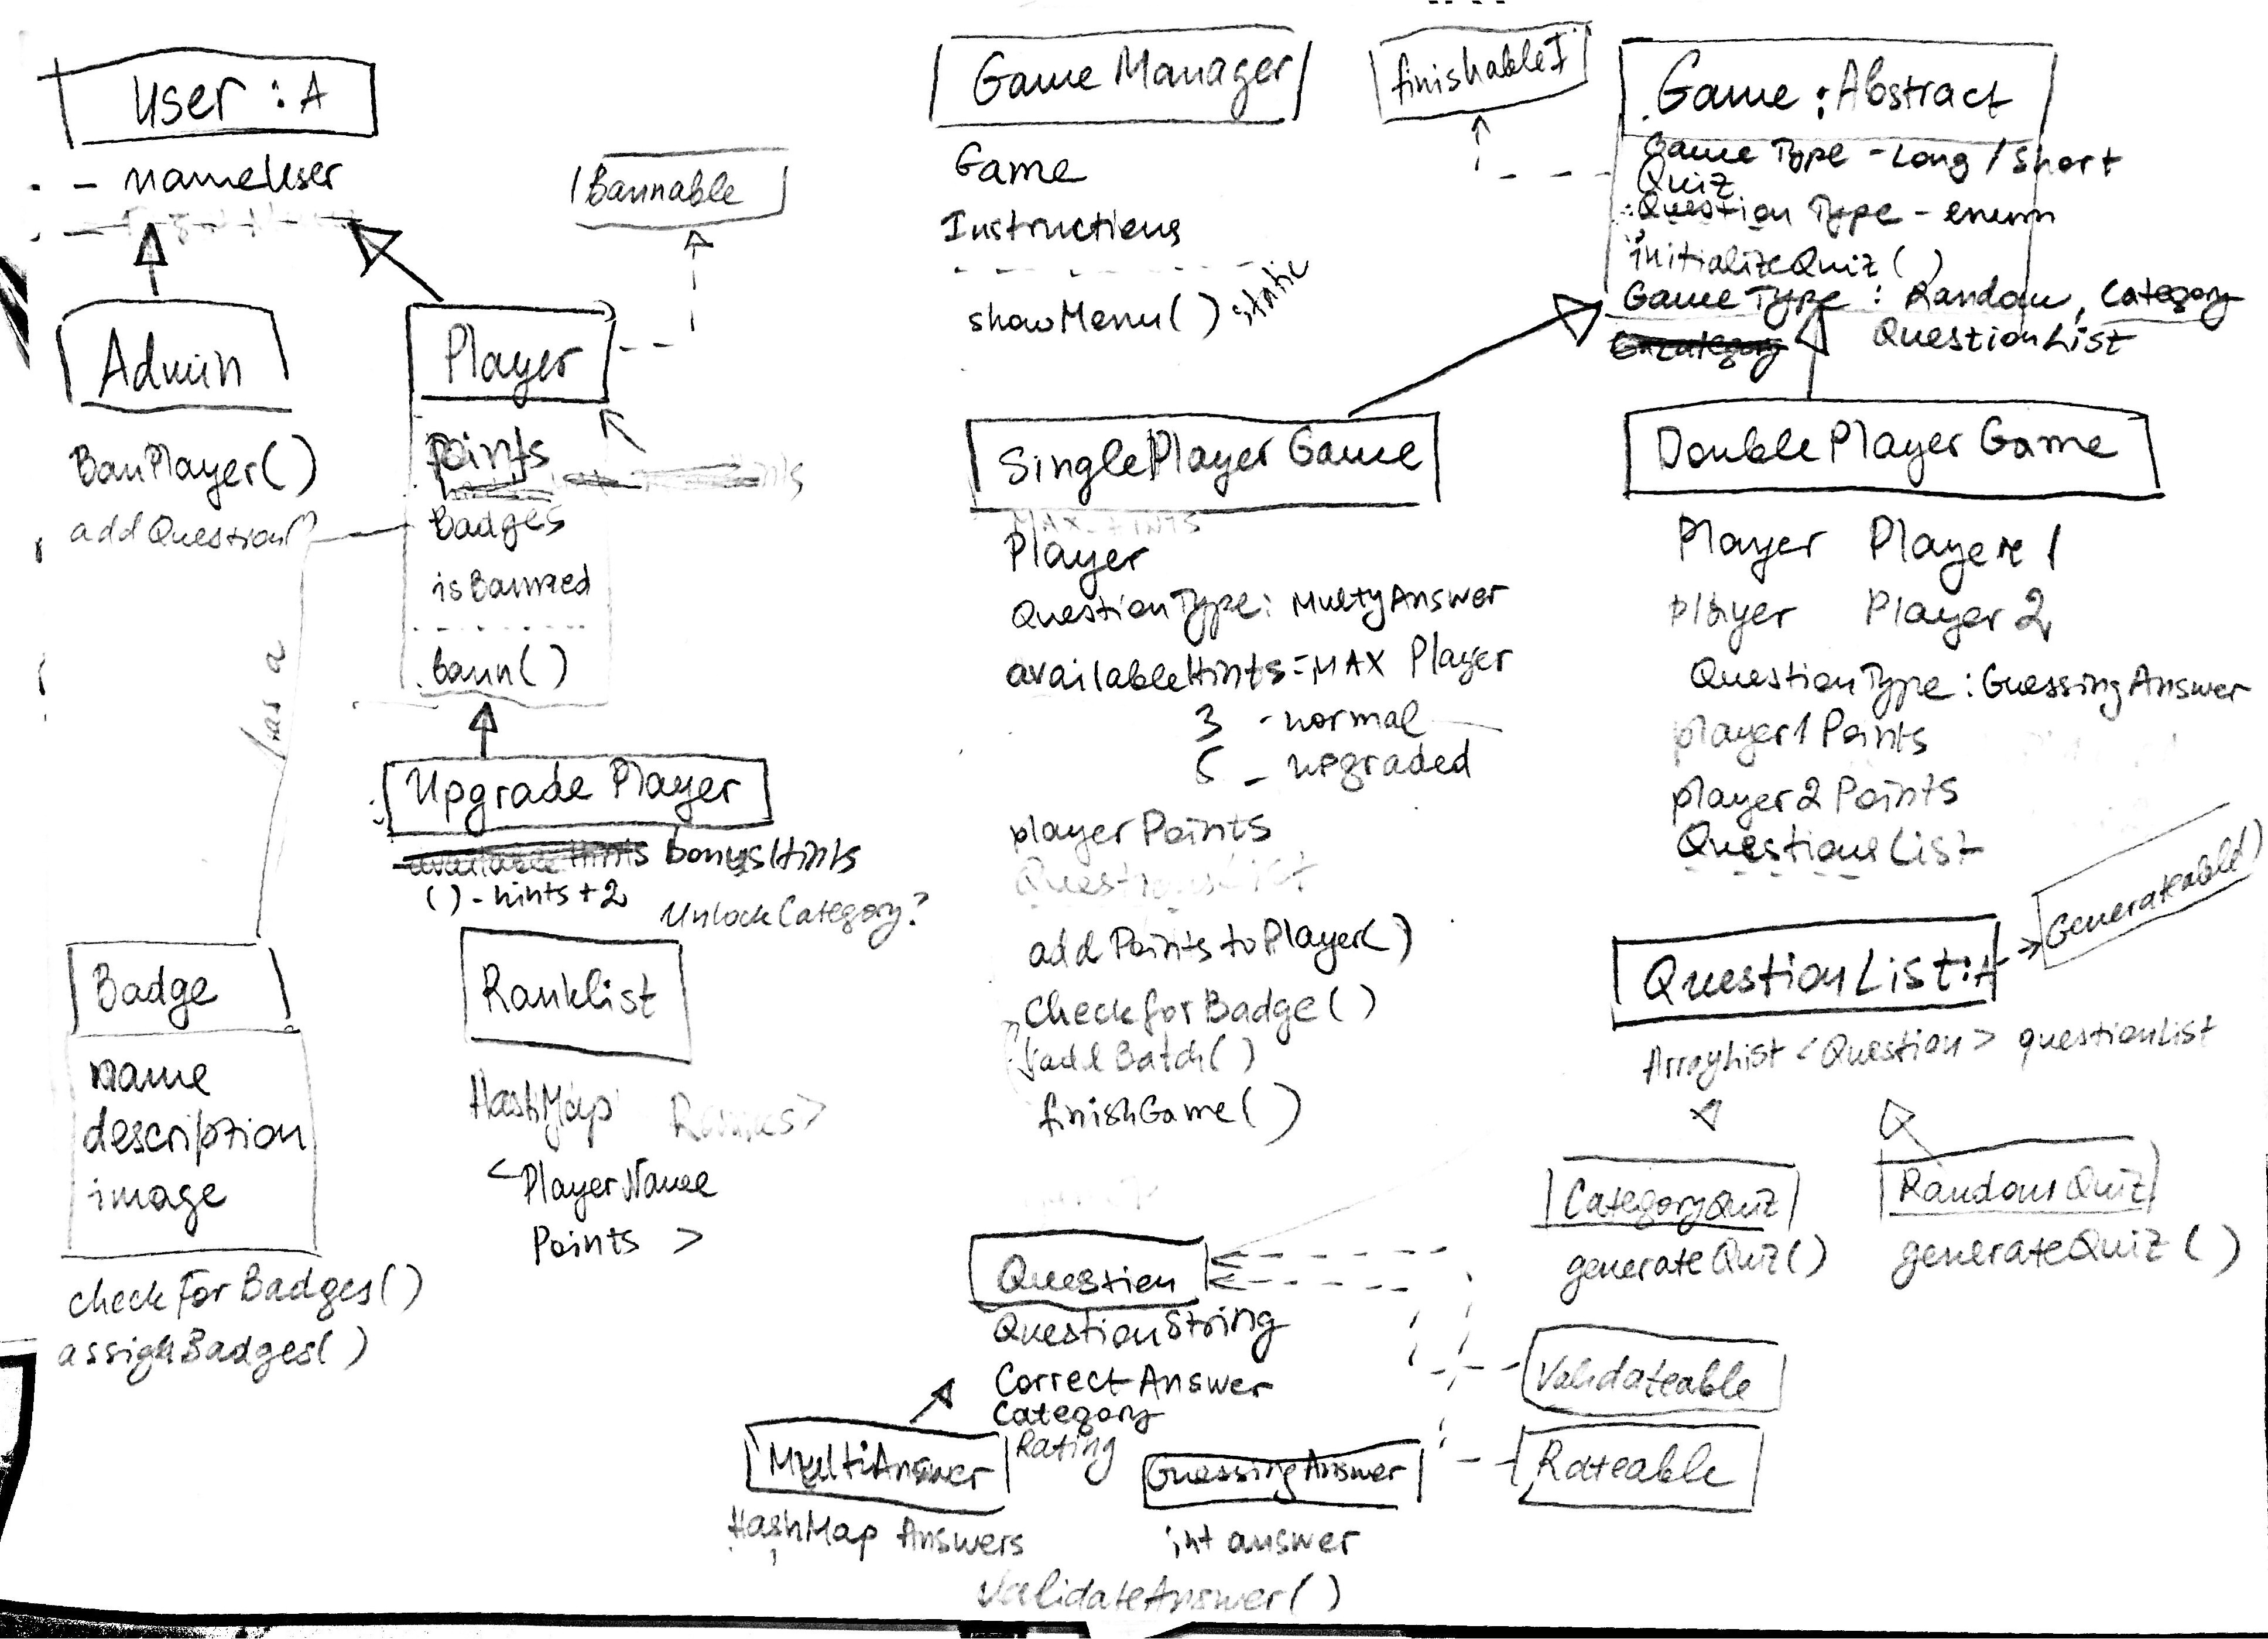 User : A
- nameUser
Admin
BanPlayer()
addQuestion()
Bannable
Player
Points
Badges
isBanned
bann()
has a
Upgrade Player
bonusHints
() - hints + 2
UnlockCategory?
Badge
name
description
image
checkForBadges()
assignBadges()
Ranklist
HashMap Ranks>
<PlayerName
Points >
Game Manager
Game
Instructions
showMenu() static
finishableI
Game : Abstract
Game Type - Long / Short
Quiz
Question Type - enum
initializeQuiz()
Game Type : Random, Category
QuestionList
SinglePlayer Game
MAX_HINTS
Player
QuestionType: MultyAnswer
availableHints = MAX Player
3 - normal
5 - upgraded
playerPoints
QuestionsList
addPointstoPlayer()
CheckforBadge()
addBatch()
finishGame()
DoublePlayer Game
Player Player 1
player Player 2
QuestionType : GuessingAnswer
player1Points
player2Points
QuestionsList
Generateable
QuestionList:A
ArrayList <Question> questionList
CategoryQuiz
generateQuiz()
RandomQuiz
generateQuiz()
Question
QuestionString
CorrectAnswer
Category
Rating
MultiAnswer
HashMap Answers
GuessingAnswer
int answer
ValidateAnswer()
Validateable
Rateable